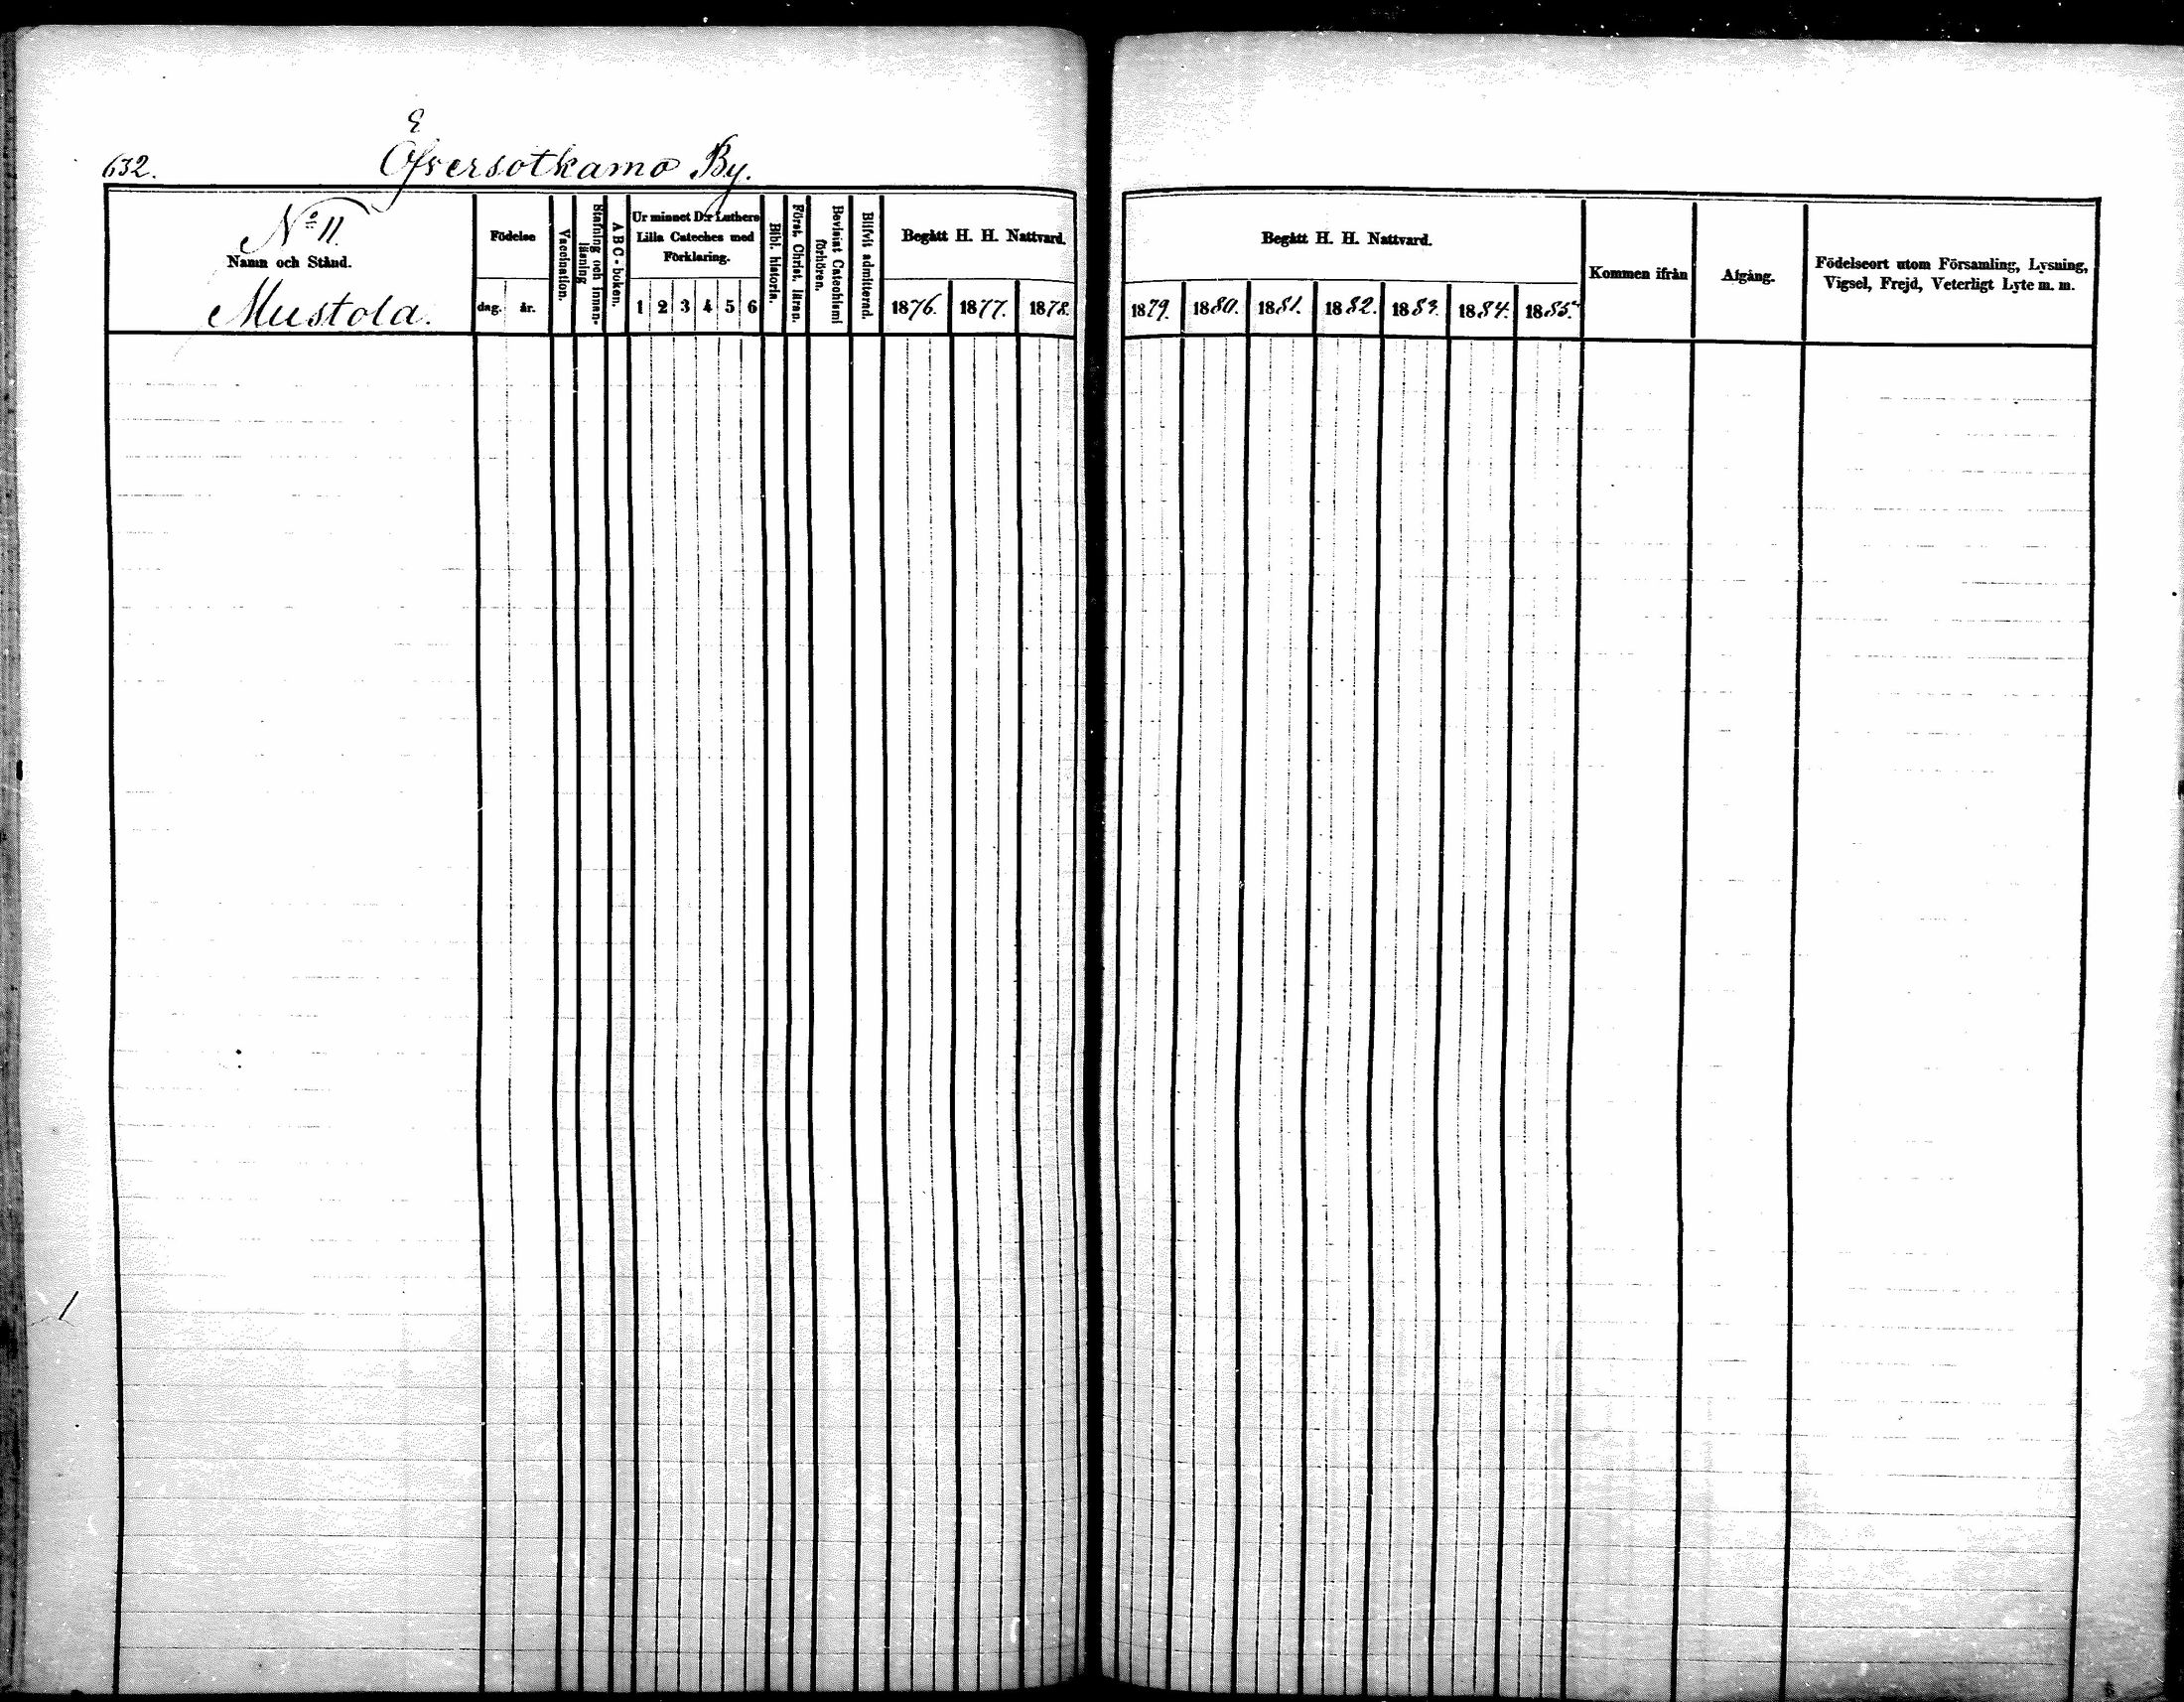 E
632. Öfversotkamo By.
No 11.
Namn och Stånd.
Mustola.
Födelse
dag. år.
Vaccination.
Stafning och Innan-
läsning
ABC-boken.
Ur minnet D:r Luthers
Lilla Cateches med
Förklaring.
1 2 3 4 5 6
Bibl. historia.
Först. Christ. läran.
Bevistat Catechismi
förhören.
Blifvit admitterad.
Begått H. H. Nattvard.
1876. 1877. 1878.
Begått H. H. Nattvard.
1879. 1880. 1881. 1882. 1883. 1884. 1885.
Kommen ifrån
Afgång.
Födelseort utom Församling, Lysning,
Vigsel, Frejd, Veterligt Lyte m. m.